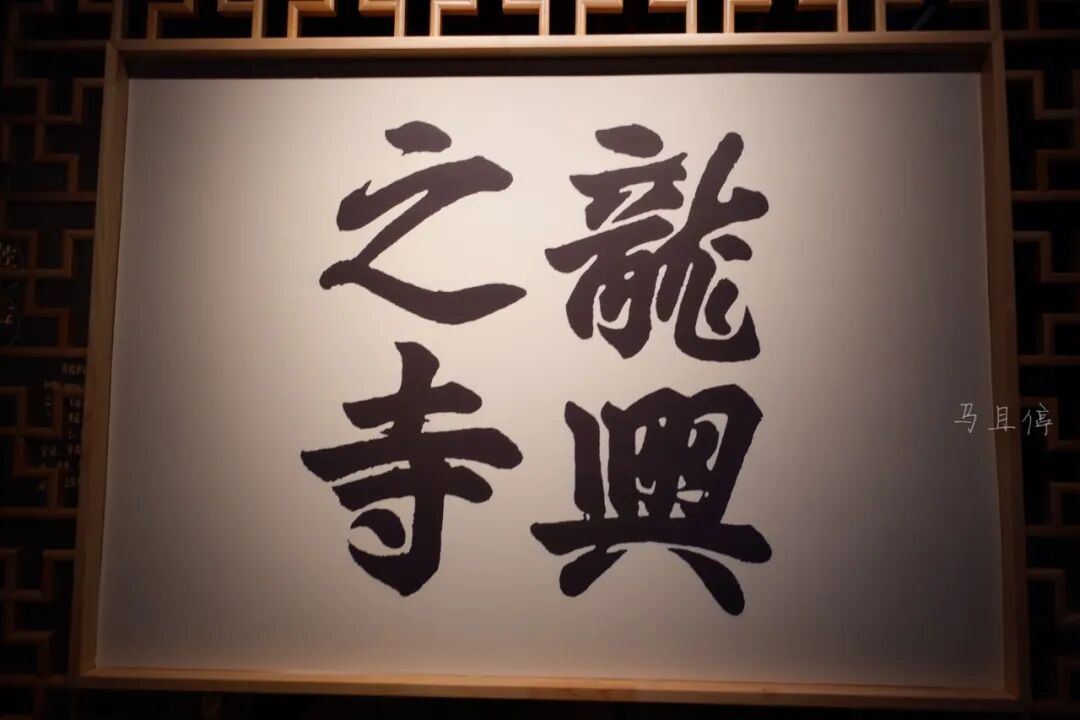 龍興
之寺
马且停